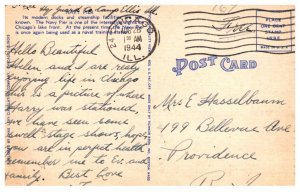 Its modern docks and steamship facilities
known. The Navy Pier is one of the
Chicago's lake front. At the present time the
is once again being used as a naval training
Hello Beautiful
Helen and I are really
enjoying life in Chicago
this is a picture of where
Harry was stationed,
we have seen some
swell stage shows, hope
you are in perfect health
remember me to Ev. and
family. Best Love
CHICAGO
1944
ILL.
Free
PLACE
ONE CENT
STAMP
HERE
POST CARD
Mrs E Hasselbaum
499 Bellevue Ave
Providence
R.I.